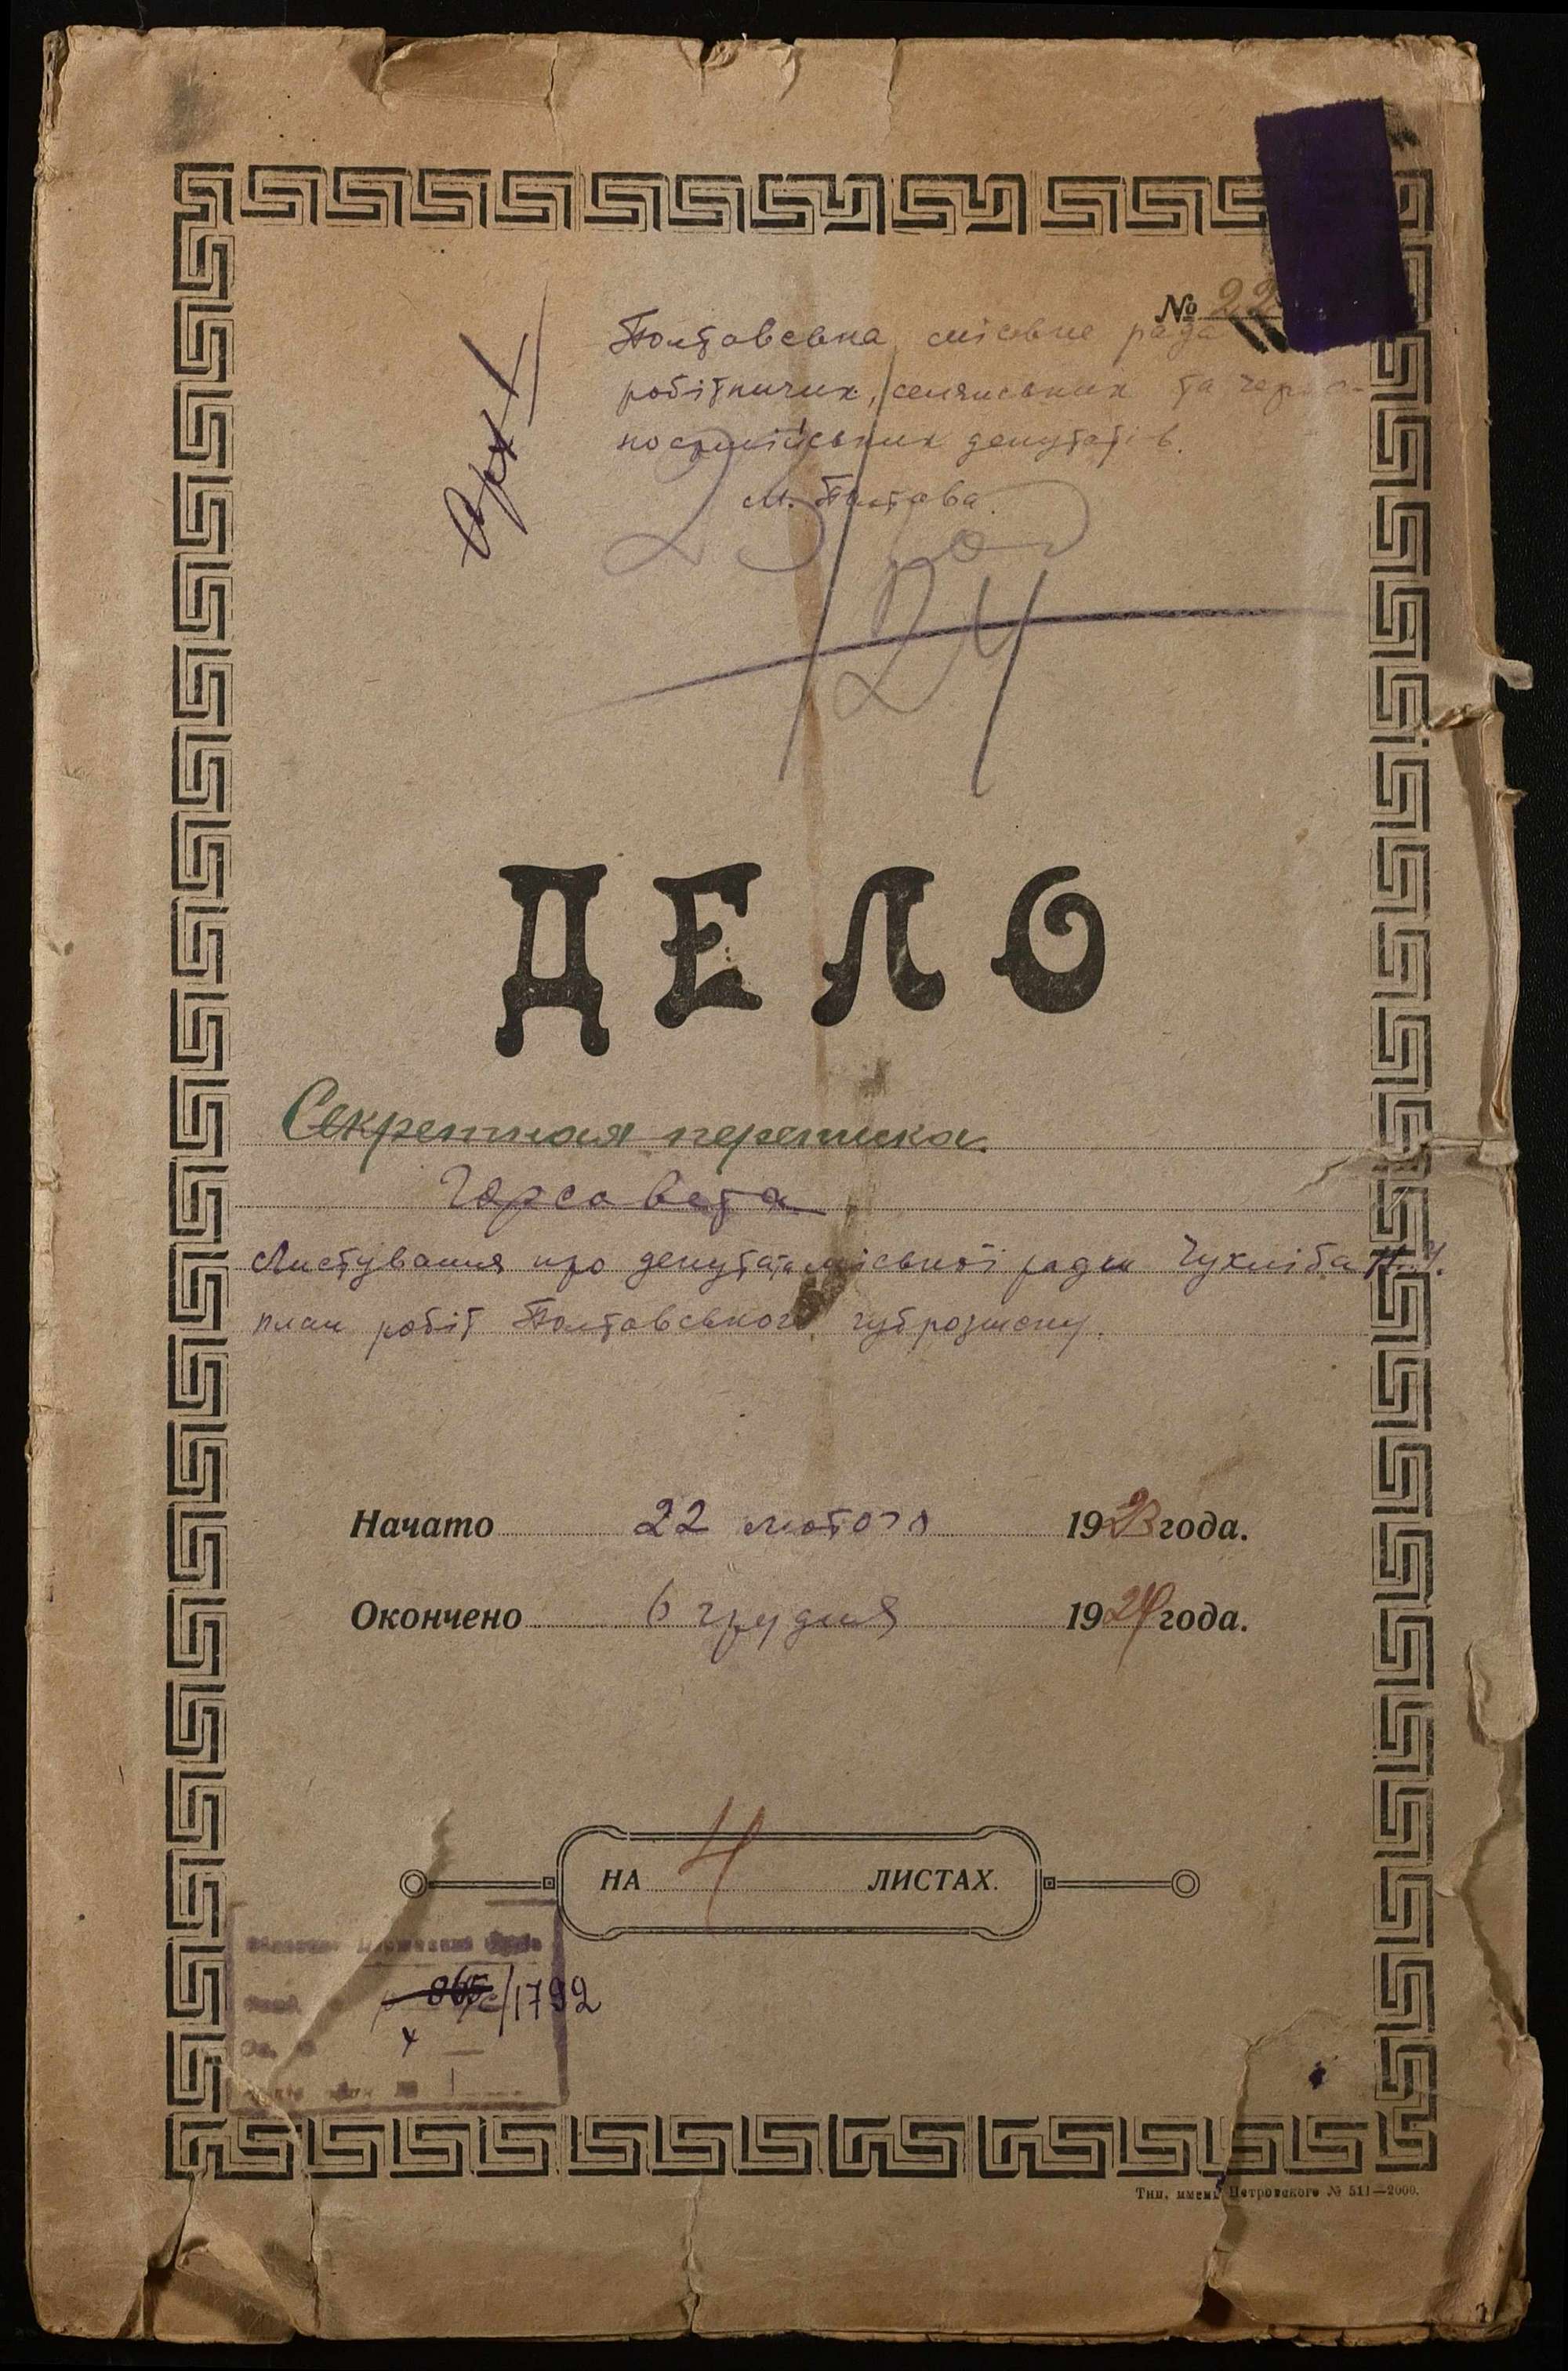 № 22
Полтавська міська рада
робітничих, селянських та черво-
ноармійських депутатів.
м. Полтава.
Арх
23 год
24
ДЕЛО
Секретная переписка
Горсовета
Листування про депутата міської ради Чухліба
план робіт Полтавського
Начато 22 лютого 1923 года.
Окончено 6 грудня 1924 года.
НА 4 ЛИСТАХ.
865/1792
Тип. имени Петровского № 511—2000.